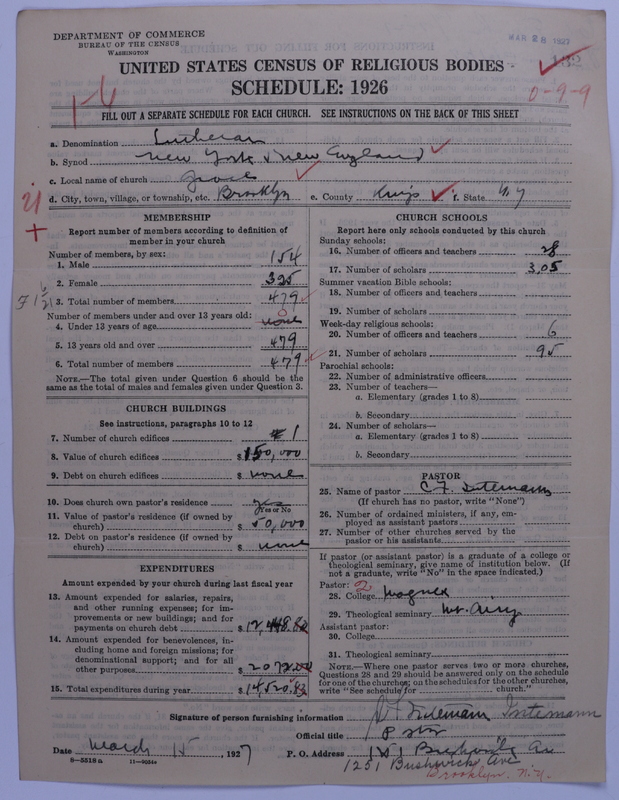 DEPARTMENT OF COMMERCE
BUREAU OF THE CENSUS
WASHINGTON
MAR 28 1927
UNITED STATES CENSUS OF RELIGIOUS BODIES
SCHEDULE: 1926
1-6
0-9-9
FILL OUT A SEPARATE SCHEDULE FOR EACH CHURCH. SEE INSTRUCTIONS ON THE BACK OF THIS SHEET
a. Denomination Lutheran
b. Synod New York & New England
c. Local name of church Grace
d. City, town, village, or township, etc. Brooklyn e. County Kings f. State N.Y
MEMBERSHIP
Report number of members according to definition of member in your church
Number of members, by sex:
1. Male 154
2. Female 325
3. Total number of members 479
Number of members under and over 13 years old:
4. Under 13 years of age none
5. 13 years old and over 479
6. Total number of members 479
NOTE.—The total given under Question 6 should be the same as the total of males and females given under Question 3.
CHURCH BUILDINGS
See instructions, paragraphs 10 to 12
7. Number of church edifices 1
8. Value of church edifices $ 150,000
9. Debt on church edifices $ none
10. Does church own pastor's residence yes
(Yes or No)
11. Value of pastor's residence (if owned by church) $ 50,000
12. Debt on pastor's residence (if owned by church) $ none
EXPENDITURES
Amount expended by your church during last fiscal year
13. Amount expended for salaries, repairs, and other running expenses; for improvements or new buildings; and for payments on church debt $ 12,448.82
14. Amount expended for benevolences, including home and foreign missions; for denominational support; and for all other purposes $ 2072.00
15. Total expenditures during year $ 14,520.82
CHURCH SCHOOLS
Report here only schools conducted by this church
Sunday schools:
16. Number of officers and teachers 28
17. Number of scholars 305
Summer vacation Bible schools:
18. Number of officers and teachers
19. Number of scholars
Week-day religious schools:
20. Number of officers and teachers 6
21. Number of scholars 95
Parochial schools:
22. Number of administrative officers
23. Number of teachers—
a. Elementary (grades 1 to 8)
b. Secondary
24. Number of scholars—
a. Elementary (grades 1 to 8)
b. Secondary
PASTOR
25. Name of pastor C. F. Intemann
(If church has no pastor, write "None")
26. Number of ordained ministers, if any, employed as assistant pastors
27. Number of other churches served by the pastor or his assistants
If pastor (or assistant pastor) is a graduate of a college or theological seminary, give name of institution below. (If not a graduate, write "No" in the space indicated.)
Pastor: 2
28. College Wagner
29. Theological seminary Mt. Airy
Assistant pastor:
30. College
31. Theological seminary
NOTE.—Where one pastor serves two or more churches, Questions 28 and 29 should be answered only on the schedule for one of the churches; on the schedules for the other churches, write "See schedule for church."
Signature of person furnishing information C F Intemann Intemann
Official title Pastor
Date March 15, 1927 P. O. Address 1251 Bushwick Av
1251 Bushwick Ave.
Brooklyn. N.Y.
8-5518a 11-9034a